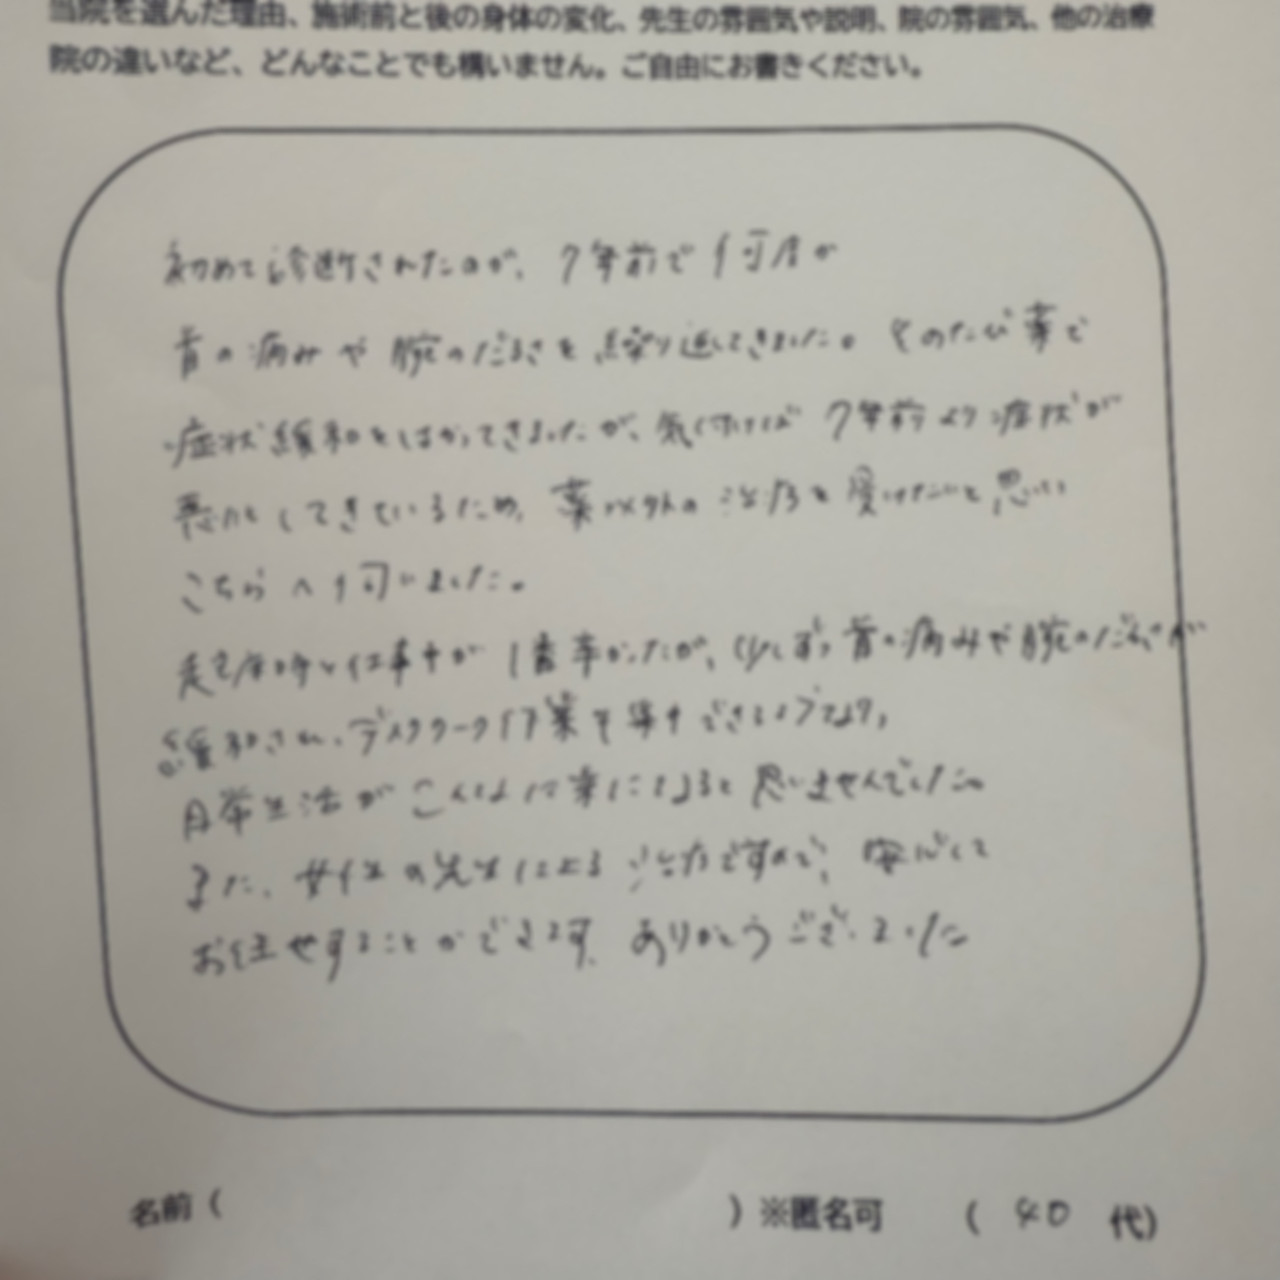 当院を選んだ理由、施術前と後の身体の変化、先生の雰囲気や説明、院の雰囲気、他の治療
院の違いなど、どんなことでも構いません。ご自由にお書きください。
初めて診断されたのが、7年前で何度か
首の痛みや腕のだるさを繰り返してきました。そのたび薬で
症状緩和をはかってきましたが、気付けば7年前より症状が
悪化してきているため、薬以外の治療を受けたいと思い
こちらへ伺いました。
起床時と仕事中が1番辛かったが、少しずつ首の痛みや腕のだるさが
緩和され、デスクワーク作業も集中できるようになり、
日常生活がこんなに楽になると思いませんでした。
また、女性の先生による治療ですので、安心して
お任せすることができます。ありがとうございました
名前( )※匿名可 ( 40 代)